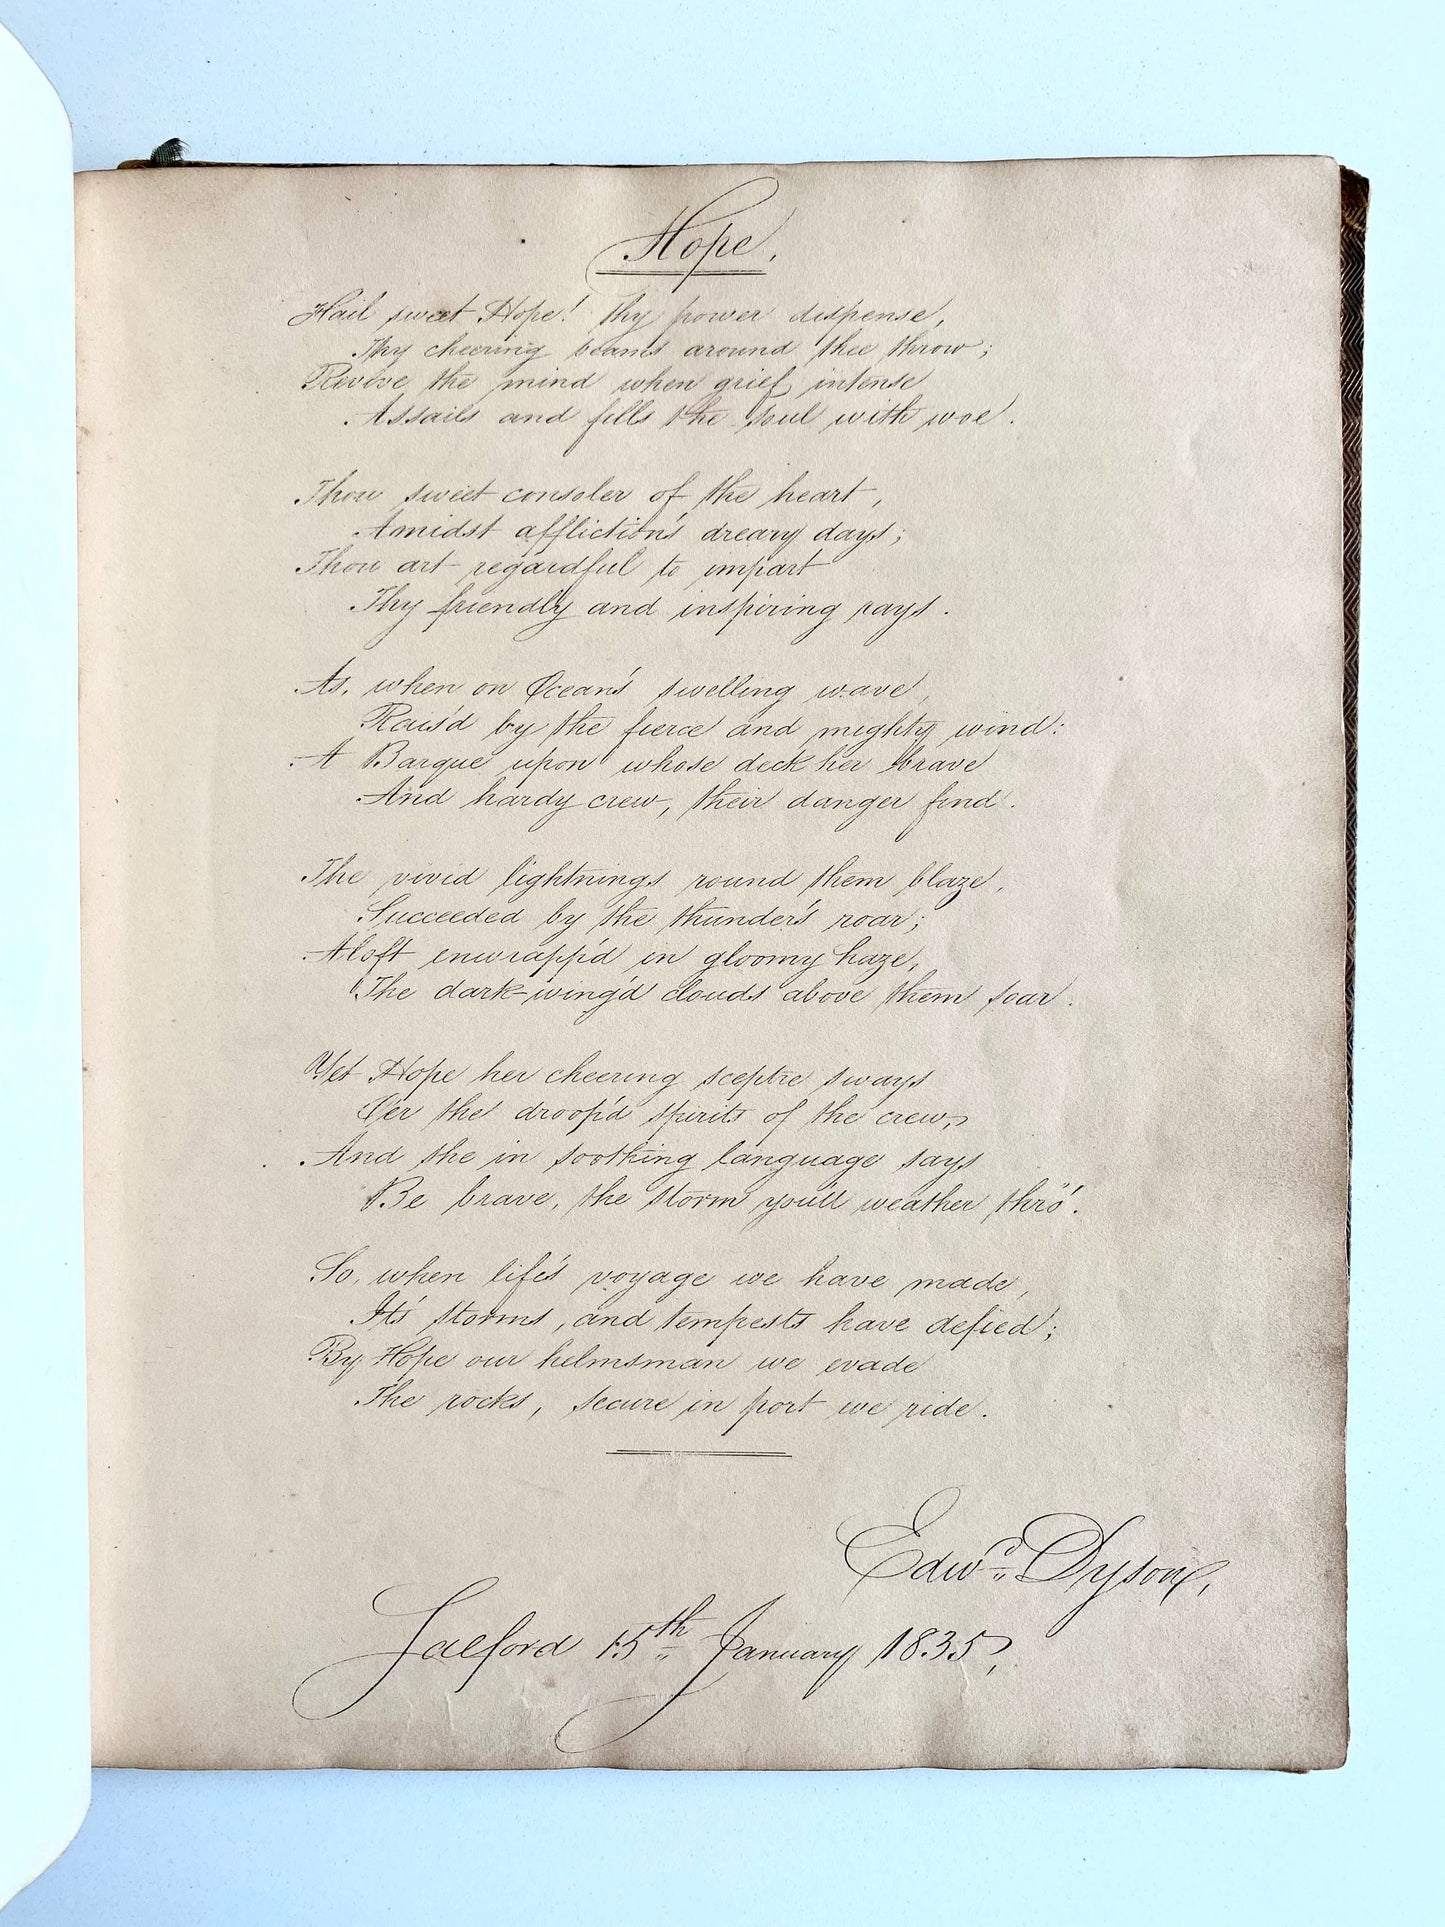 Hope.
Hail sweet Hope! thy power dispense,
Thy cheering beams around thee throw;
Revive the mind when grief intense
Assails and fills the soul with woe.
Thou sweet consoler of the heart,
Amidst affliction's dreary days;
Thou art regardful to impart
Thy friendly and inspiring rays.
As, when on Ocean's swelling wave,
Rais'd by the fierce and mighty wind:
A Barque upon whose deck her brave
And hardy crew, their danger find.
The vivid lightnings round them blaze,
Succeeded by the thunder's roar;
Aloft enwrapp'd in gloomy haze,
The dark-wing'd clouds above them soar.
Yet Hope her cheering sceptre sways
O'er the droop'd spirits of the crew,
And she in soothing language says
Be brave, the storm you'll weather thro'.
So, when life's voyage we have made,
Its' storms, and tempests have defied;
By Hope our helmsman we evade
The rocks, secure in port we ride.
Edwd. Dyson,
Salford 15th January 1835,